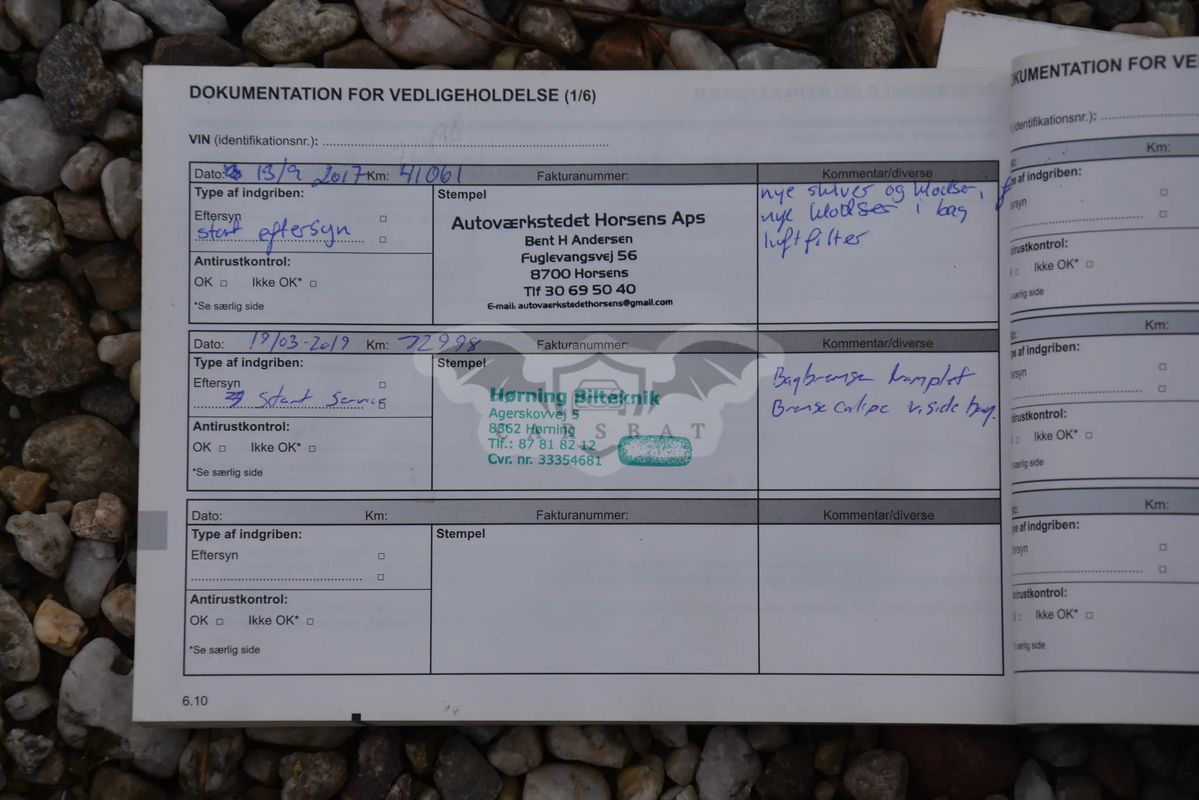 DOKUMENTATION FOR VEDLIGEHOLDELSE (1/6)
VIN (identifikationsnr.):
Dato: 13/9 2017 Km: 41061 Fakturanummer: Kommentar/diverse
Type af indgriben:
Eftersyn
stort eftersyn
Antirustkontrol:
OK Ikke OK*
*Se særlig side
Stempel
Autoværkstedet Horsens Aps
Bent H Andersen
Fuglevangsvej 56
8700 Horsens
Tlf 30 69 50 40
E-mail: autovaerkstedethorsens@gmail.com
nye skiver og klodser,
nye klodser i bag
luftfilter
Dato: 19/03-2019 Km: 72998 Fakturanummer: Kommentar/diverse
Type af indgriben:
Eftersyn
Stort Service
Antirustkontrol:
OK Ikke OK*
*Se særlig side
Stempel
Hørning Bilteknik
Agerskovvej 5
8362 Hørning
Tlf.: 87 81 82 12
Cvr. nr. 33354681
CARSBAT
Bagbremser komplet
Bremse v. side bag.
Dato: Km: Fakturanummer: Kommentar/diverse
Type af indgriben:
Eftersyn
Antirustkontrol:
OK Ikke OK*
*Se særlig side
Stempel
6.10
KUMENTATION FOR VE
identifikationsnr.):
Km:
pe af indgriben:
ersyn
tirustkontrol:
Ikke OK*
særlig side
Km:
pe af indgriben:
ersyn
tirustkontrol:
Ikke OK*
særlig side
Km:
pe af indgriben:
ersyn
tirustkontrol:
Ikke OK*
særlig side